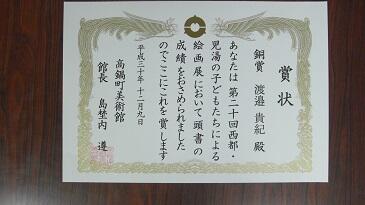 賞状
銅賞 渡邉 貴紀 殿
あなたは 第二十回西都・
児湯の子どもたちによる
絵画展において頭書の
成績をおさめられました
のでここにこれを賞します
平成三十年十二月九日
高鍋町美術館
館長 島埜内 遵